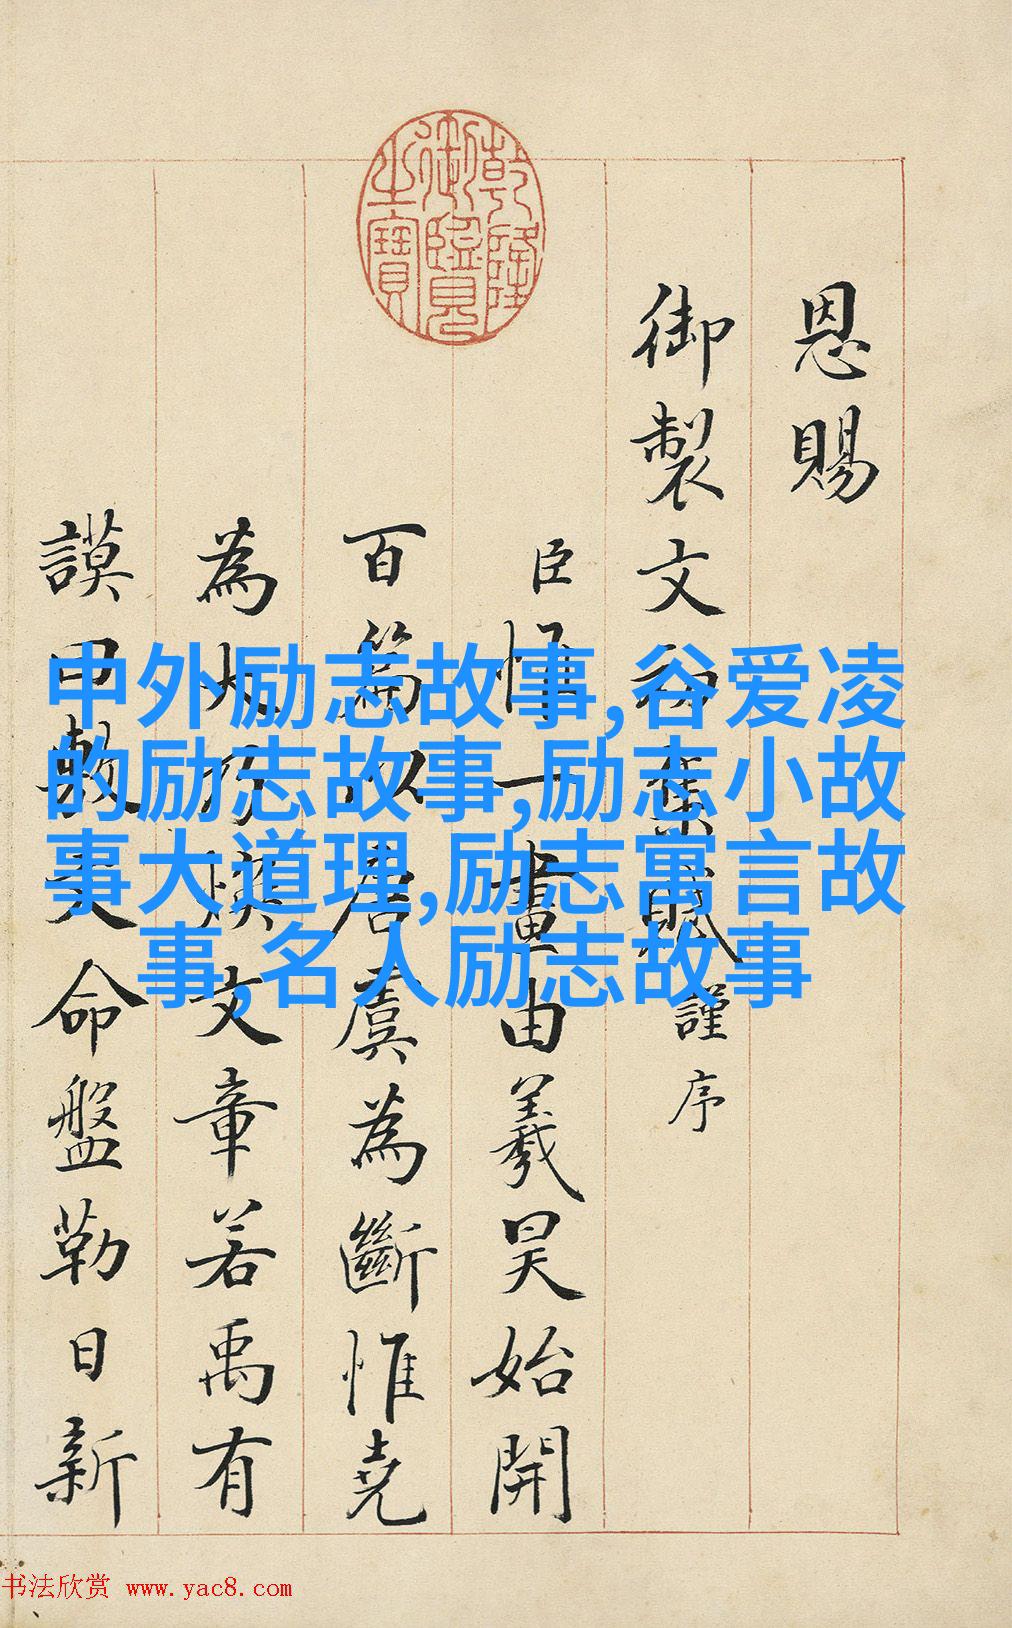 乾隆御覽之寶
恩賜
御製文初集賦謹序
臣惟一畫由羲昊始開
百篇以唐虞為斷惟堯
為大乃煥文章若禹有
謨曰敷文命盤勒日新
中外励志故事,谷爱凌
的励志故事,励志小故
事大道理,励志寓言故
事,名人励志故事
书法欣赏 www.yac8.com